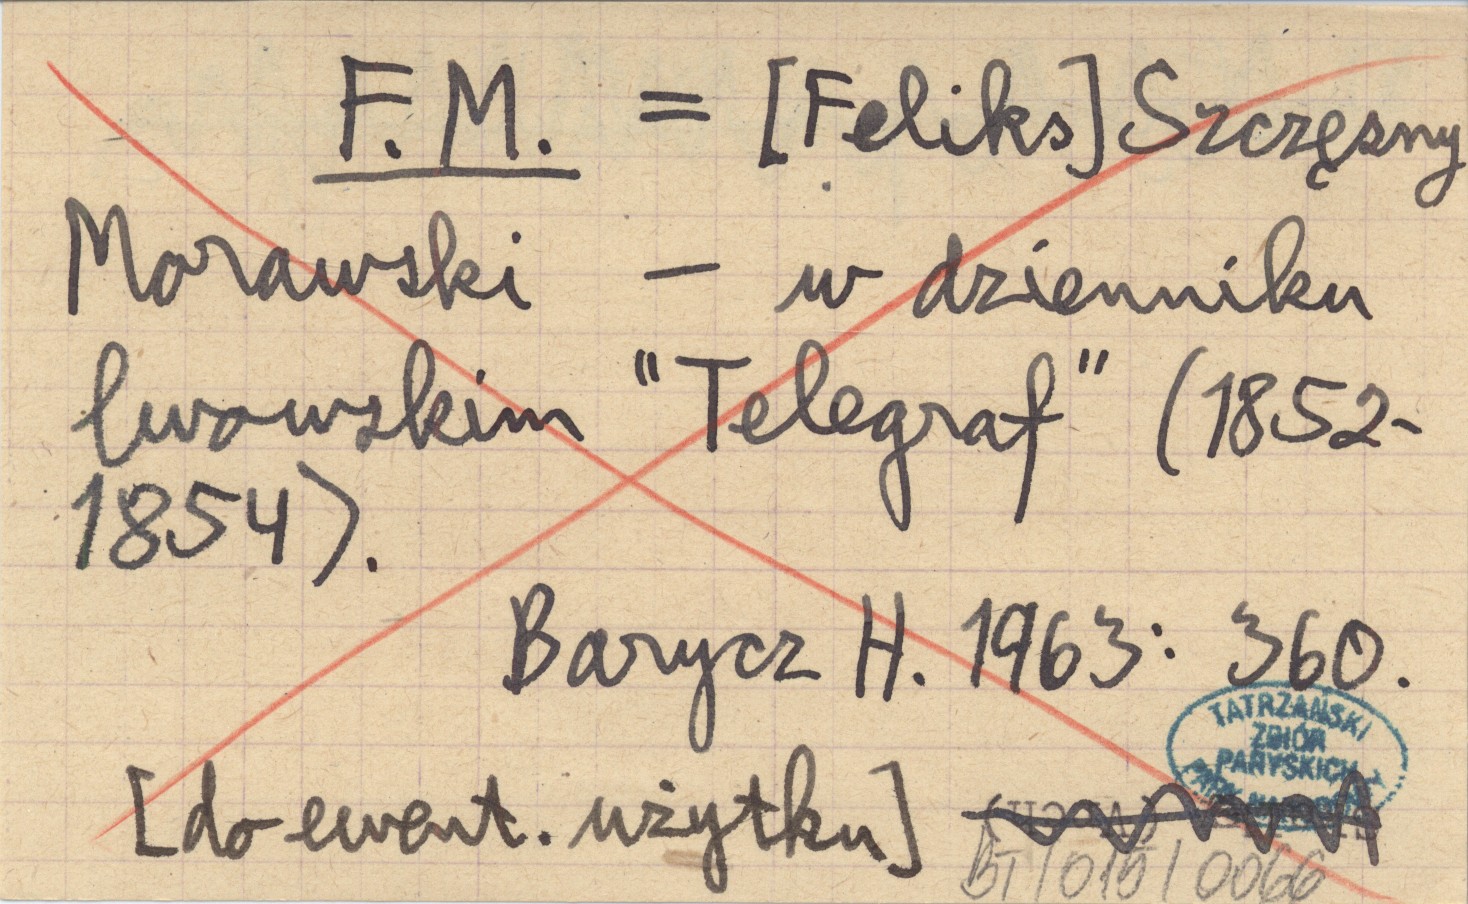 F.M. = [Feliks] Szczęsny
Morawski – w dzienniku
lwowskim "Telegraf" (1852-
1854).
Barycz H. 1963: 360.
TATRZAŃSKI
ZBIÓR
PARYSKICH
[do ewent. użytku]
BT/015/0066